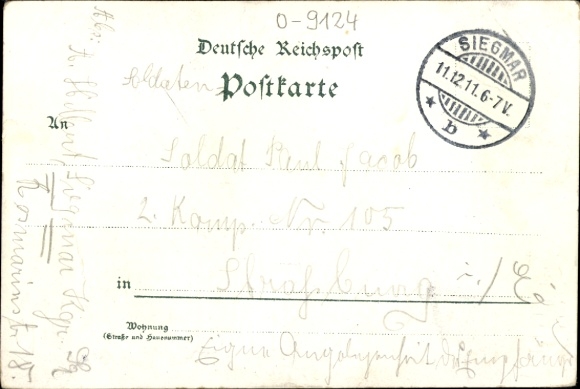 0-9124
Deutsche Reichspost
Soldaten-
Postkarte
SIEGMAR
11.12.11.6-7V.
* b *
An
Soldat Paul Jacob
2. Komp. Nr. 105
in Straßburg i/E.
Wohnung
(Straße und Hausnummer)
Eigne Angelegenheit d. Empfängers
Abs: A. Hilbert, Siegmar
Rosmarinstr 18.